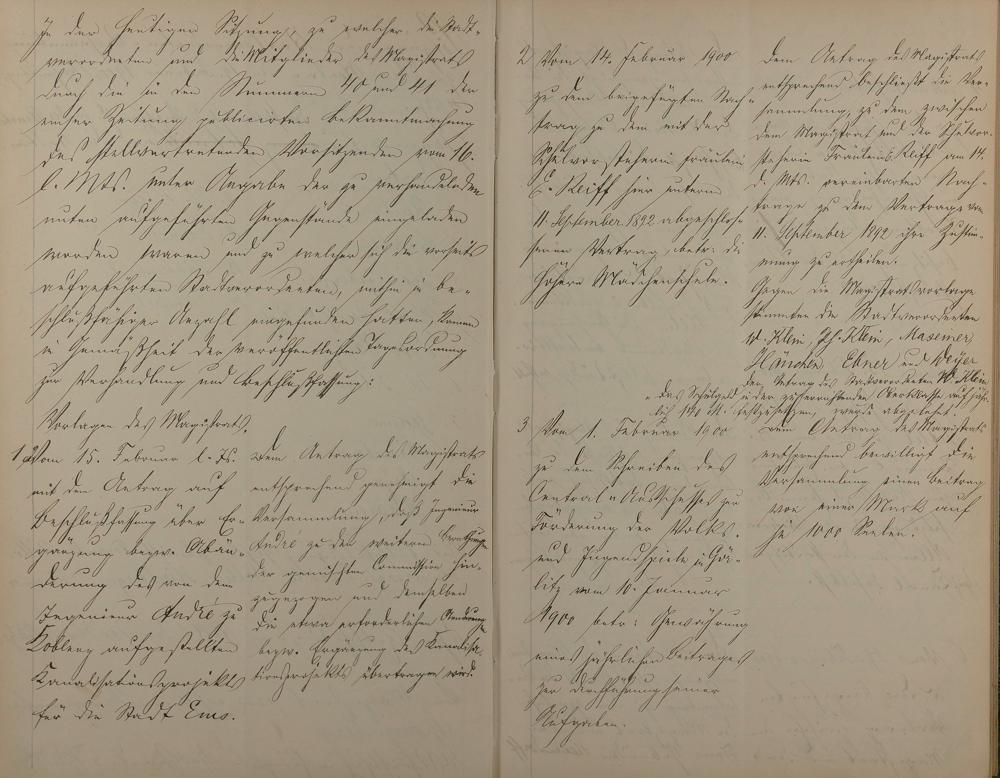 In der heutigen Sitzung, zu welcher die Stadt-
verordneten und die Mitglieder des Magistrats
durch die in den Nummern 40 und 41 der
Emser Zeitung publicirten Bekanntmachung
des stellvertretenden Vorsitzenden vom 16.
l. Mts. unter Angabe der zu verhandelnden
unten aufgeführten Gegenstände eingeladen
worden waren und zu welcher sich die vorseits
aufgeführten Stadtverordneten, mithin in be-
schlußfähiger Anzahl eingefunden hatten, kamen
in Gemäßheit der veröffentlichten Tagesordnung
zur Verhandlung und Beschlußfassung:
Vorlagen des Magistrats.
1 Vom 15. Februar l. Js.
mit dem Antrag auf
Beschlußfassung über Er-
gänzung bezw. Abän-
derung des von dem
Ingenieur André zu
Coblenz aufgestellten
Kanalisationsprojekts
für die Stadt Ems.
Dem Antrag des Magistrats
entsprechend genehmigt die
Versammlung, daß Ingenieur
André zu den weiteren
der gemischten Commission hin-
zugezogen und demselben
die etwa erforderlichen Aenderungen
bezw. Ergänzung des Kanalisa-
tionsprojekts übertragen wird.
2 Vom 14. Februar 1900
zu dem beigefügten Nach-
trag zu dem mit der
Schulvorsteherin Fräulein
E. Reiff hier unterm
11. September 1892 abgeschlos-
senen Vertrag, betr. die
höhere Mädchenschule.
Dem Antrag des Magistrats
entsprechend beschließt die Ver-
sammlung, zu dem zwischen
dem Magistrat und der Schulvor-
steherin Fräulein E. Reiff am 14.
d. Mts. vereinbarten Nach-
trage zu dem Vertrage vom
11. September 1892 ihre Zustim-
mung zu ertheilen.
Gegen die Magistratsvorlage
stimmten die Stadtverordneten
W. Klein, Ph. Klein, Massemer
Hänchen, Ebner und Weyer
Der Antrag des Stadtverordneten W. Klein
"das Schulgeld in der zu errichtenden Oberklasse auf jähr-
lich M. festzusetzen, wurde abgelehnt.
3 Vom 1. Februar 1900
zu dem Schreiben des
Central-Ausschusses zur
Förderung der Volks-
und Jugendspiele in Gör-
litz vom 10. Januar
1900 betr: Gewährung
eines jährlichen Beitrages
zur Durchführung seiner
Aufgaben.
Dem Antrag des Magistrats
entsprechend bewilligt die
Versammlung einen Beitrag
von einer Mark auf
je 1000 Seelen.